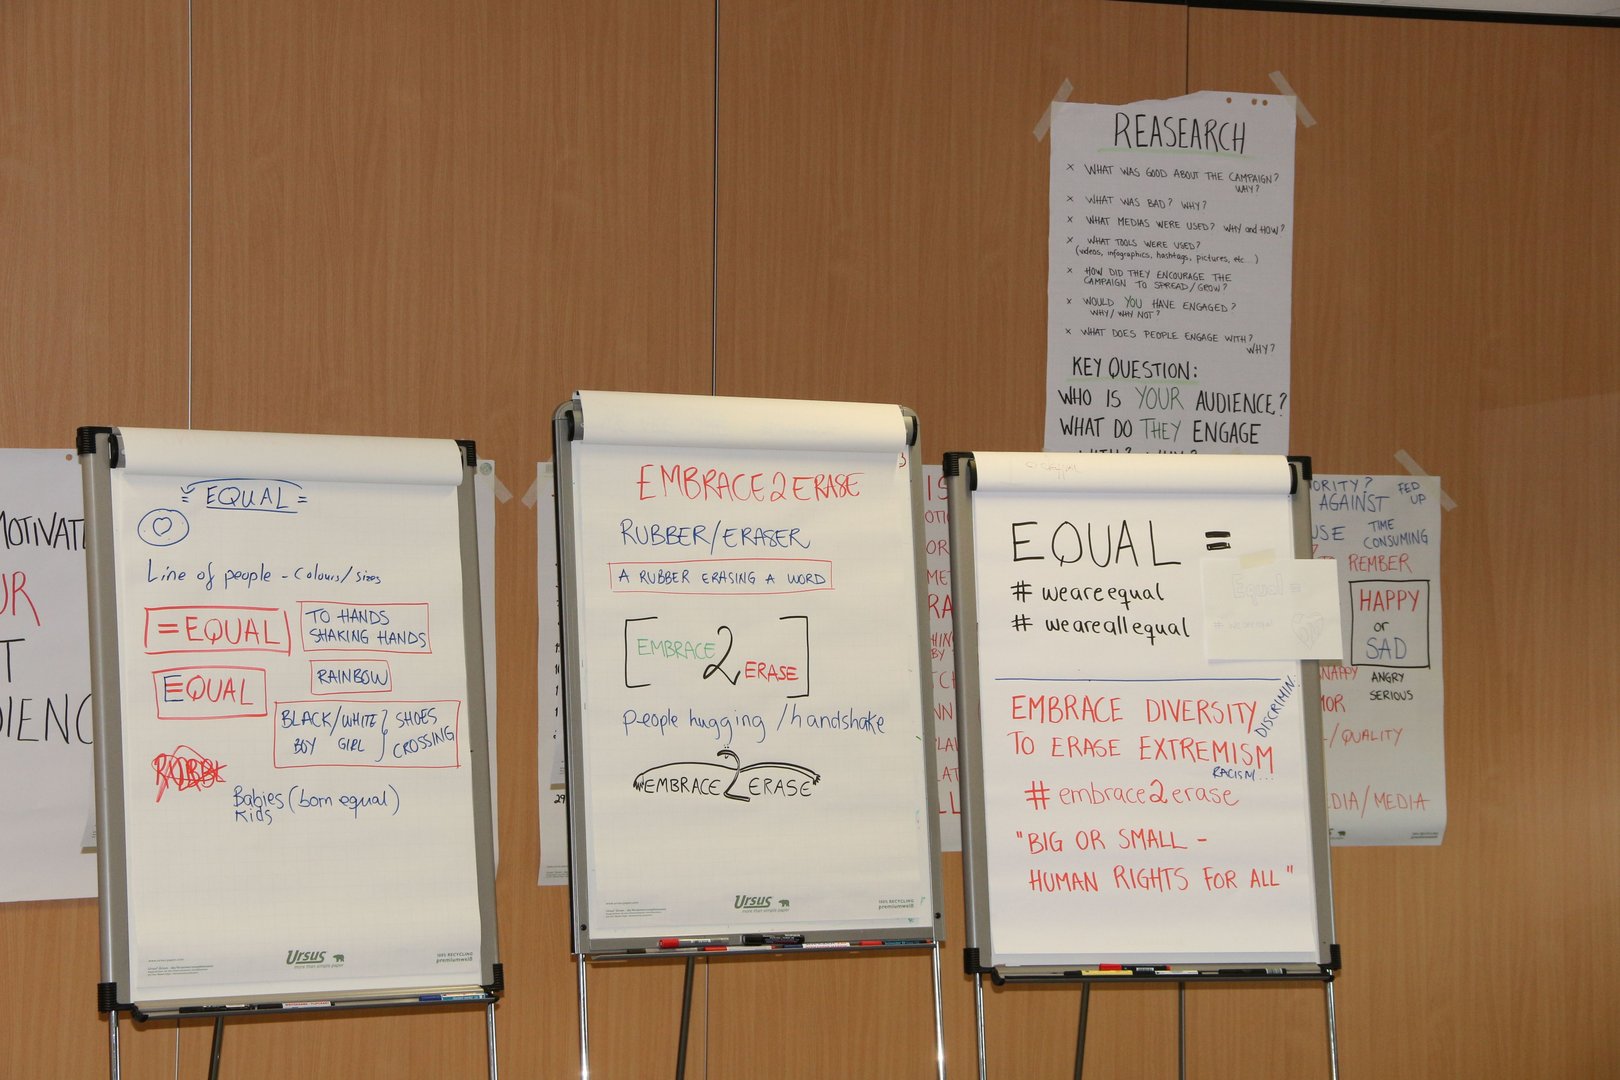 REASEARCH
x WHAT WAS GOOD ABOUT THE CAMPAIGN?
WHY?
x WHAT WAS BAD? WHY?
x WHAT MEDIAS WERE USED? WHY and HOW?
x WHAT TOOLS WERE USED?
(videos, infographics, hashtags, pictures, etc...)
x HOW DID THEY ENCOURAGE THE
CAMPAIGN TO SPREAD/GROW?
x WOULD YOU HAVE ENGAGED?
WHY/WHY NOT?
x WHAT DOES PEOPLE ENGAGE WITH?
WHY?
KEY QUESTION:
WHO IS YOUR AUDIENCE?
WHAT DO THEY ENGAGE
= EQUAL =
Line of people - Colours/sizes
=EQUAL
TO HANDS
SHAKING HANDS
EQUAL
RAINBOW
BLACK/WHITE
BOY GIRL
} SHOES
CROSSING
Babies (born equal)
Kids
Ursus
more than simple paper
100% RECYCLING
premiumweiß
EMBRACE2ERASE
RUBBER/ERASER
A RUBBER ERASING A WORD
[EMBRACE 2 ERASE]
people hugging /handshake
EMBRACE 2 ERASE
Ursus
more than simple paper
100% RECYCLING
premiumweiß
EQUAL =
# weareequal
# weareallequal
Equal =
# weareequal
EMBRACE DIVERSITY
DISCRIMIN.
TO ERASE EXTREMISM
RACISM...
# embrace2erase
"BIG OR SMALL -
HUMAN RIGHTS FOR ALL"
MOTIVAT
UR
T
DIENC
29
ORITY?
FED
UP
AGAINST
USE
TIME
CONSUMING
REMBER
HAPPY
or
SAD
ANGRY
SERIOUS
MOR
/QUALITY
DIA/MEDIA